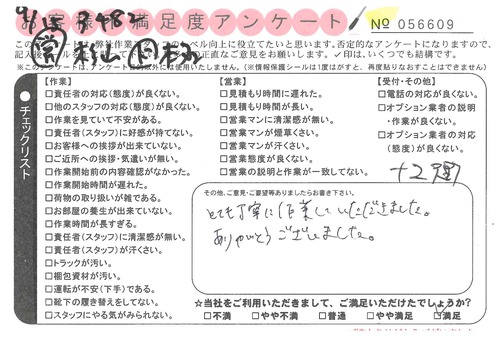 お客様満足度アンケート
№ 056609
このアンケートは、弊社作業スタッフのレベル向上に役立てたいと思います。否定的なアンケートになりますので、
※このアンケートは、アンケート目的以外には使用いたしません。(※情報保護シールは1度はがすと、再度貼りなおすことはできません)
チェックリスト
【作業】
□責任者の対応(態度)が良くない。
□他のスタッフの対応(態度)が良くない。
□作業を見ていて不安がある。
□責任者(スタッフ)に好感が持てない。
□お客様への挨拶が出来ていない。
□ご近所への挨拶・気遣いが無い。
□作業開始前の内容確認がなかった。
□作業開始時間が遅れた。
□荷物の取り扱いが雑である。
□お部屋の養生が出来ていない。
□作業時間が長すぎる。
□責任者(スタッフ)に清潔感が無い。
□責任者(スタッフ)が汗くさい。
□トラックが汚い。
□梱包資材が汚い。
□運転が不安(下手)である。
□靴下の履き替えをしてない。
□スタッフにやる気がみられない。
【営業】
□見積もり時間に遅れた。
□見積もり時間が長い。
□営業マンに清潔感が無い。
□営業マンが煙草くさい。
□営業マンが汗くさい。
□営業態度が良くない。
□営業の説明と作業が一致してない。
【受付・その他】
□電話の対応が良くない。
□オプション業者の説明
・作業が良くない。
□オプション業者の対応
(態度)が良くない。
その他、ご意見・ご要望等ありましたらお書き下さい。
とても丁寧に作業していただきました。
ありがとうございました。
☆当社をご利用いただきまして、ご満足いただけたでしょうか?
□不満 □やや不満 □普通 □やや満足 □満足